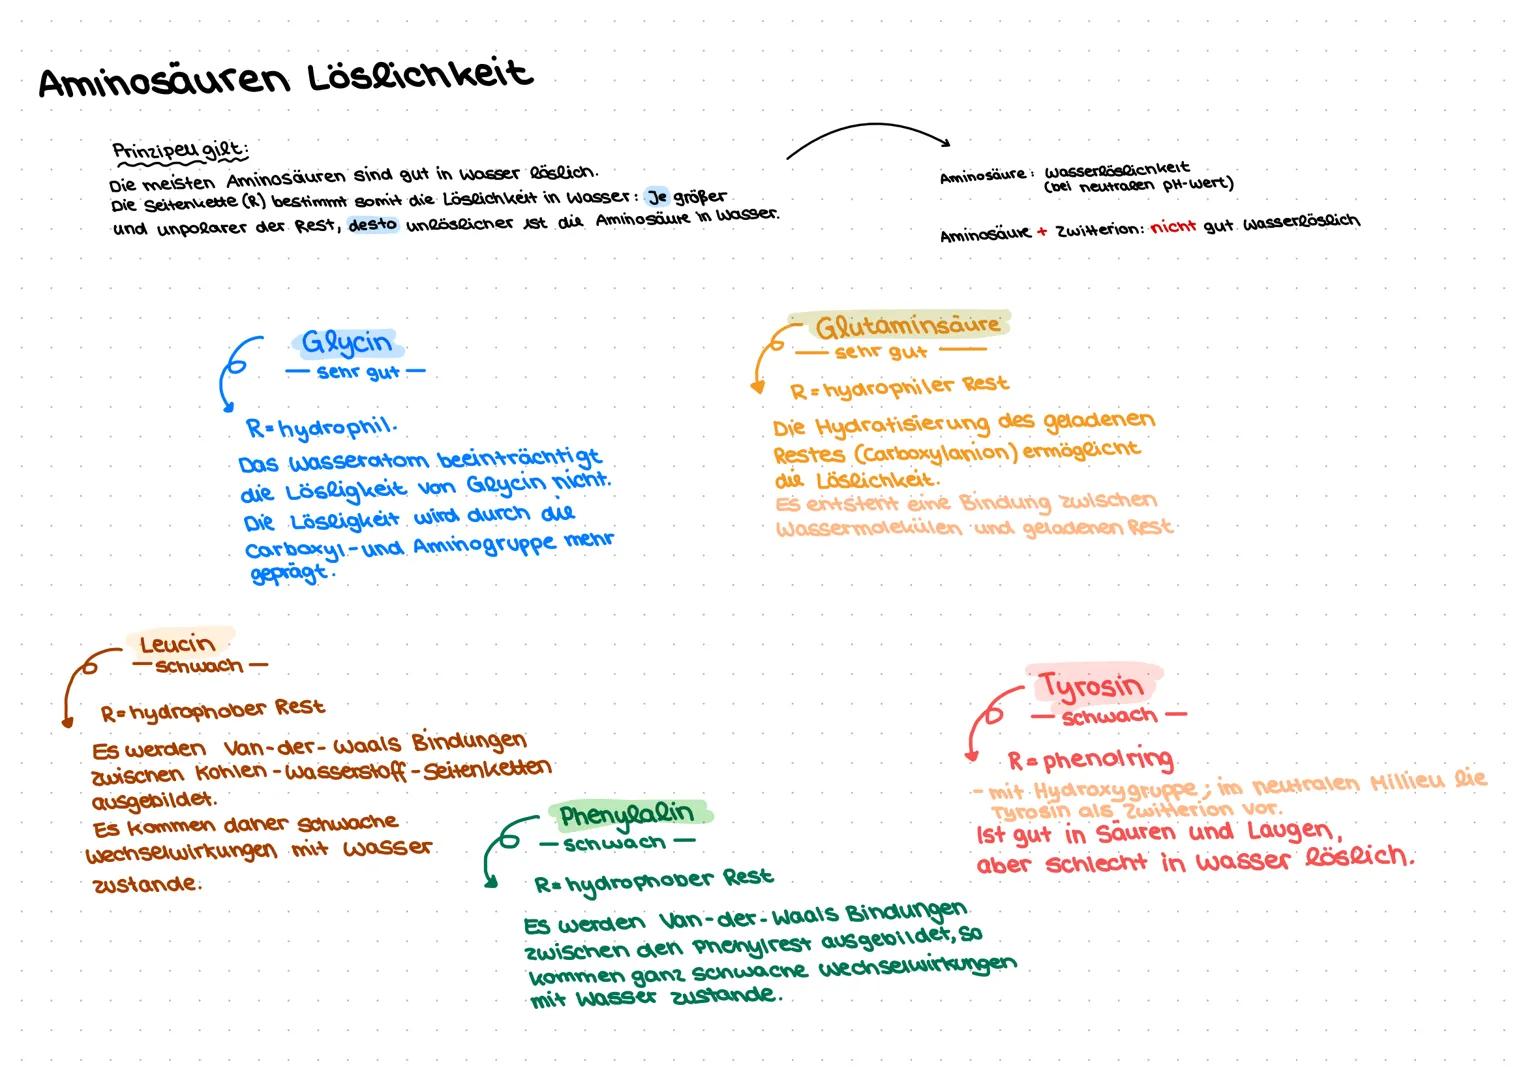 Aminosäuren Löslichkeit
Prinzipell gilt:
Die meisten Aminosäuren sind gut in Wasser löslich.
Die Seitenkette (R) bestimmt somit die Löslichkeit in Wasser: Je größer
und unpolarer der Rest, desto unlöslicher ist die Aminosäure in Wasser.
Aminosäure: Wasserlöslichkeit
(bei neutralen pH-Wert)
Aminosäure + Zwitterion: nicht gut wasserlöslich
Glycin
— sehr gut —
R=hydrophil.
Das Wasseratom beeinträchtigt
die Lösligkeit von Glycin nicht.
Die Lösligkeit wird durch die
Carboxyl-und Aminogruppe mehr
geprägt.
Glutaminsäure
— sehr gut —
R=hydrophiler Rest
Die Hydratisierung des geladenen
Restes (Carboxylanion) ermöglicht
die Löslichkeit.
Es entsteht eine Bindung zwischen
Wassermolekülen und geladenen Rest
Leucin
— schwach —
R=hydrophober Rest
Es werden Van-der-Waals Bindungen
zwischen Kohlen-Wasserstoff-Seitenketten
ausgebildet.
Es kommen daher schwache
Wechselwirkungen mit Wasser
zustande.
Phenylalin
— schwach —
R=hydrophober Rest
Es werden Van-der-Waals Bindungen
zwischen den Phenylrest ausgebildet, so
kommen ganz schwache Wechselwirkungen
mit Wasser zustande.
Tyrosin
— schwach —
R=phenolring
- mit Hydroxygruppe; im neutralen Millieu lie
Tyrosin als Zwitterion vor.
Ist gut in Säuren und Laugen,
aber schlecht in Wasser löslich.